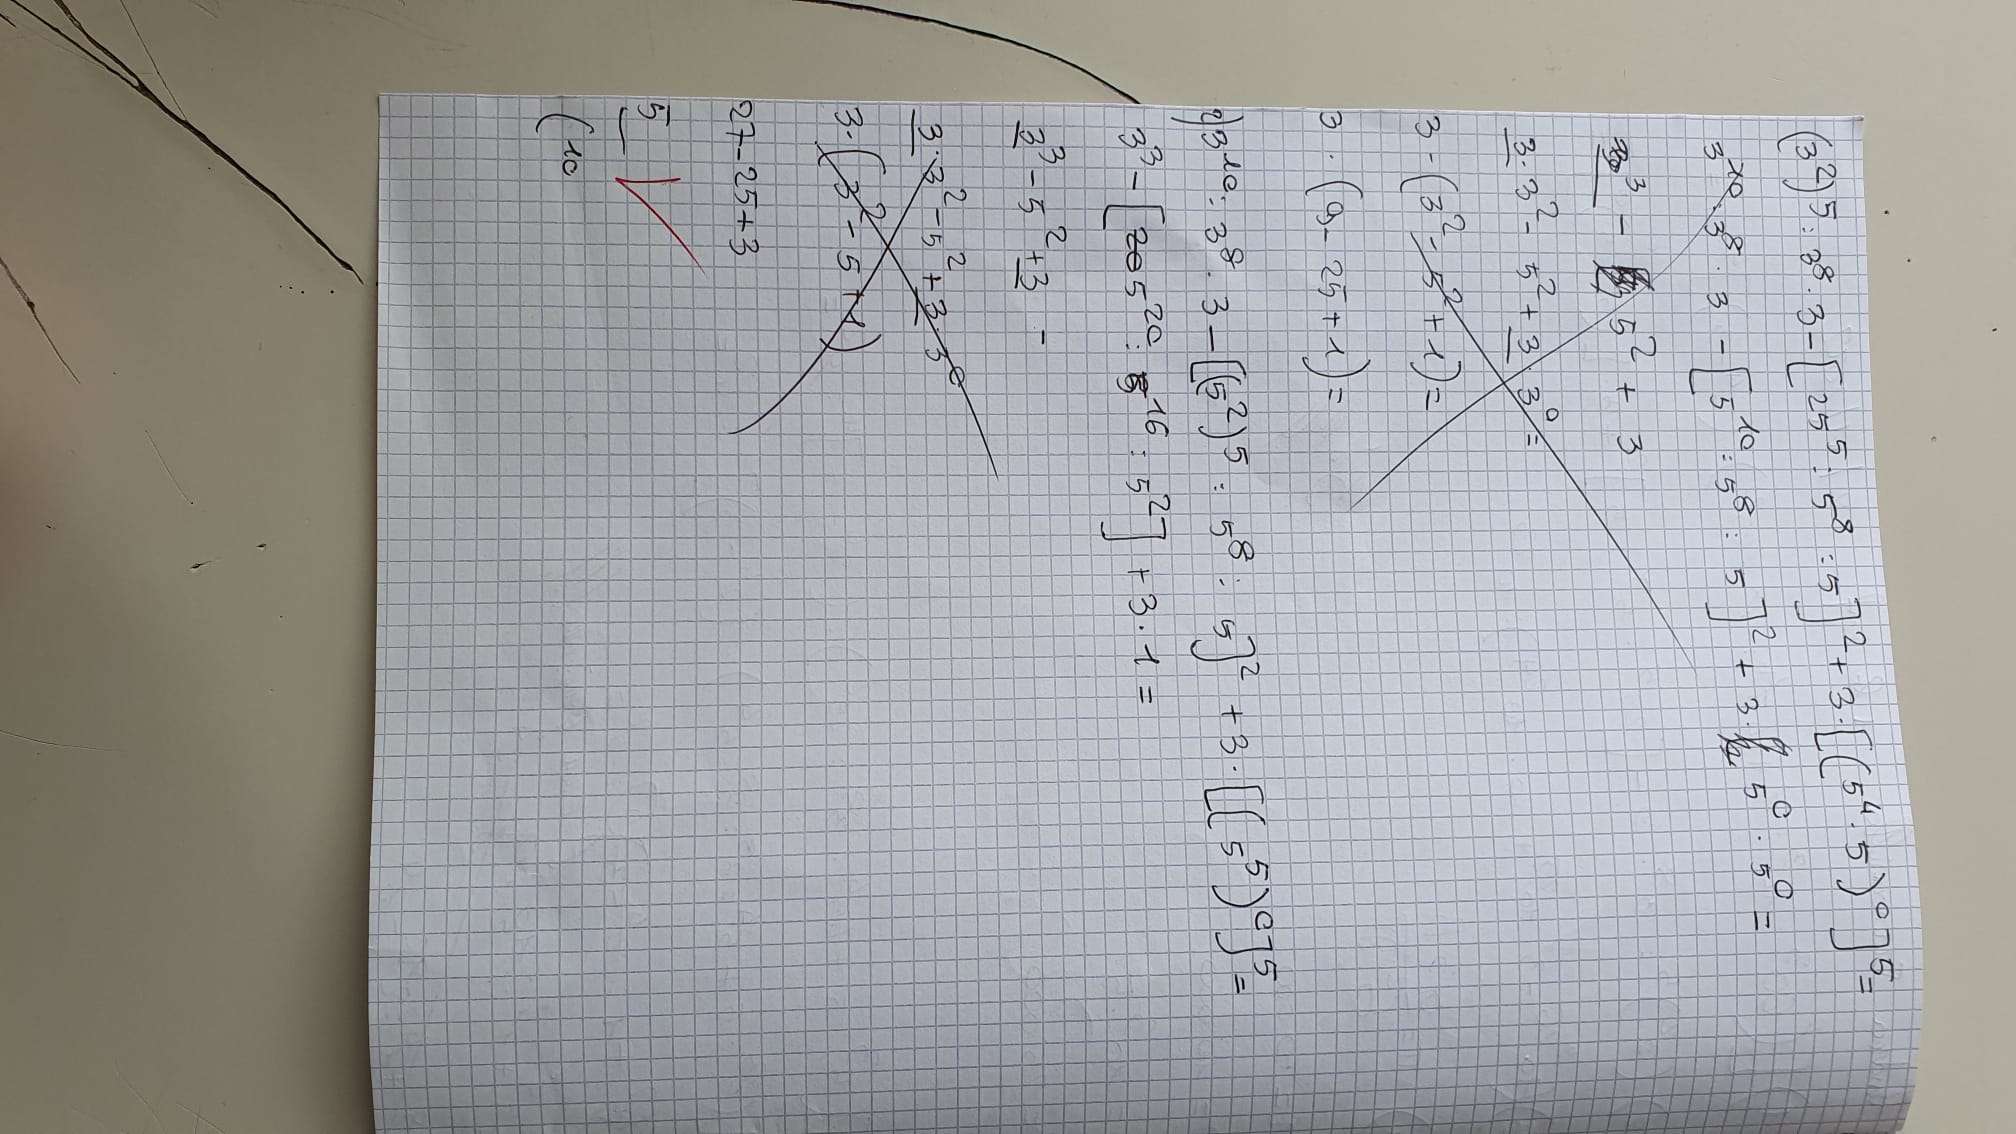 (3²)⁵:3⁸·3-[25⁵:5⁸:5]²+3·[(5⁴·5)⁰]⁵=
3¹⁰:3⁸·3-[5¹⁰:5⁸:5]²+3·5⁰·5⁰=
3³-5²+3
3·3²-5²+3·3⁰=
3·(3²-5²+1)=
3·(9-25+1)=
3¹⁰:3⁸·3-[(5²)⁵:5⁸:5]²+3·[(5⁵)⁰]⁵=
3³-[5²⁰:5¹⁶:5²]+3·1=
3³-5²+3-
3·3²-5²+3·3⁰
3·(3²-5+1)
27-25+3
5
(10